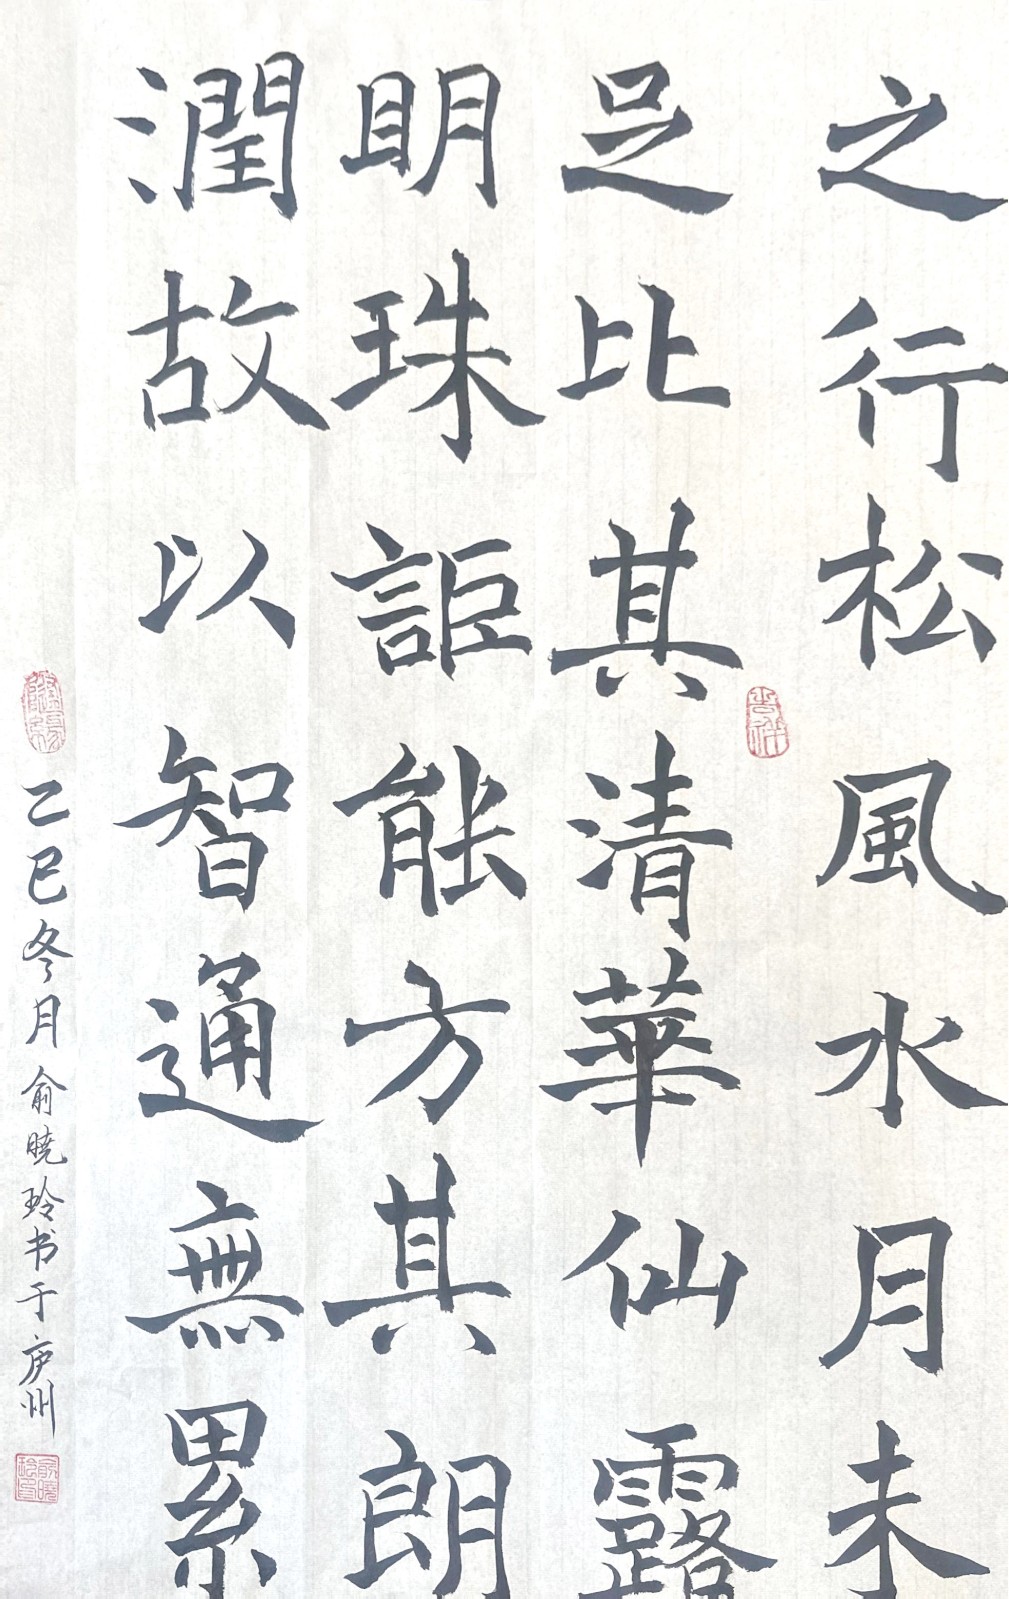 之行松風水月未
足比其清華仙露
明珠詎能方其朗
潤故以智通無累
乙巳冬月俞晓玲书于庐州
吉祥
俞晓玲印